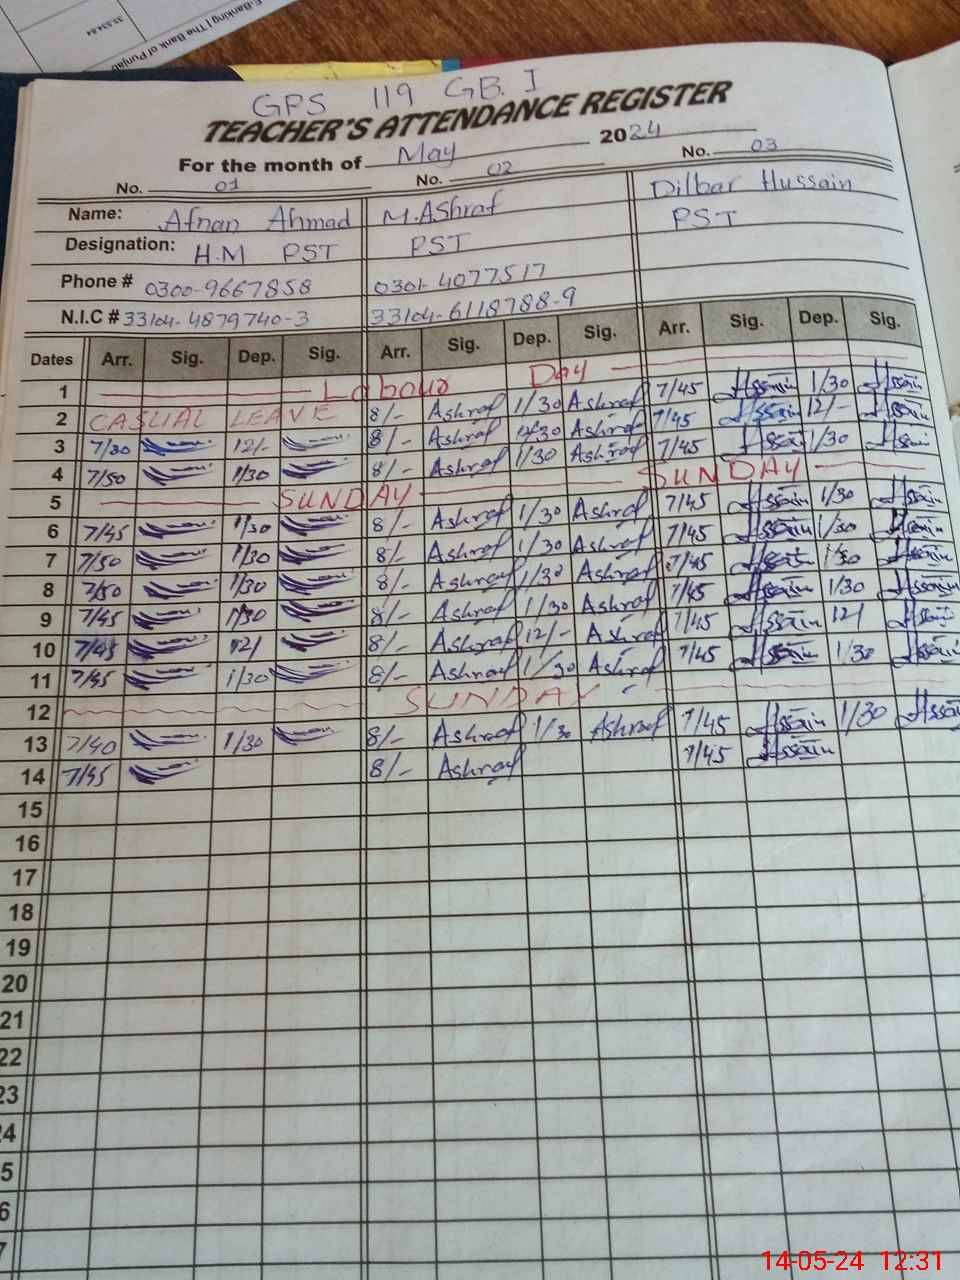 E-Banking | The Bank of Punjab
GPS 119 GB. I
TEACHER'S ATTENDANCE REGISTER
For the month of May 2024
No. 01 No. 02 No. 03
Name: Afnan Ahmad M. Ashraf Dilbar Hussain
Designation: H.M PST PST PST
Phone # 0300-9667858 0301-4077517
N.I.C # 33104-4879740-3 33104-6118788-9
Dates Arr. Sig. Dep. Sig. Arr. Sig. Dep. Sig. Arr. Sig. Dep. Sig.
1 Labour Day
2 CASUAL LEAVE 8/- Ashraf 1/30 Ashraf 7/45 1/30
3 7/30 12/- 8/- Ashraf Ashraf 7/45 12/-
4 7/50 1/30 8/- Ashraf 1/30 Ashraf 7/45 1/30
5 SUNDAY SUNDAY
6 7/45 1/30 8/- Ashraf 1/30 Ashraf 7/45 1/30
7 7/50 1/30 8/- Ashraf 1/30 Ashraf 7/45 1/30
8 7/50 1/30 8/- Ashraf 1/30 Ashraf 7/45 1/30
9 7/45 1/30 8/- Ashraf 1/30 Ashraf 7/45 1/30
10 7/45 12/ 8/- Ashraf 12/- Ashraf 7/45 12/
11 7/45 1/30 8/- Ashraf 1/30 Ashraf 7/45 1/30
12 SUNDAY
13 7/40 1/30 8/- Ashraf 1/30 Ashraf 7/45 1/30
14 7/45 8/- Ashraf 7/45
15
16
17
18
19
20
21
22
23
24
5
6
7
14-05-24 12:31